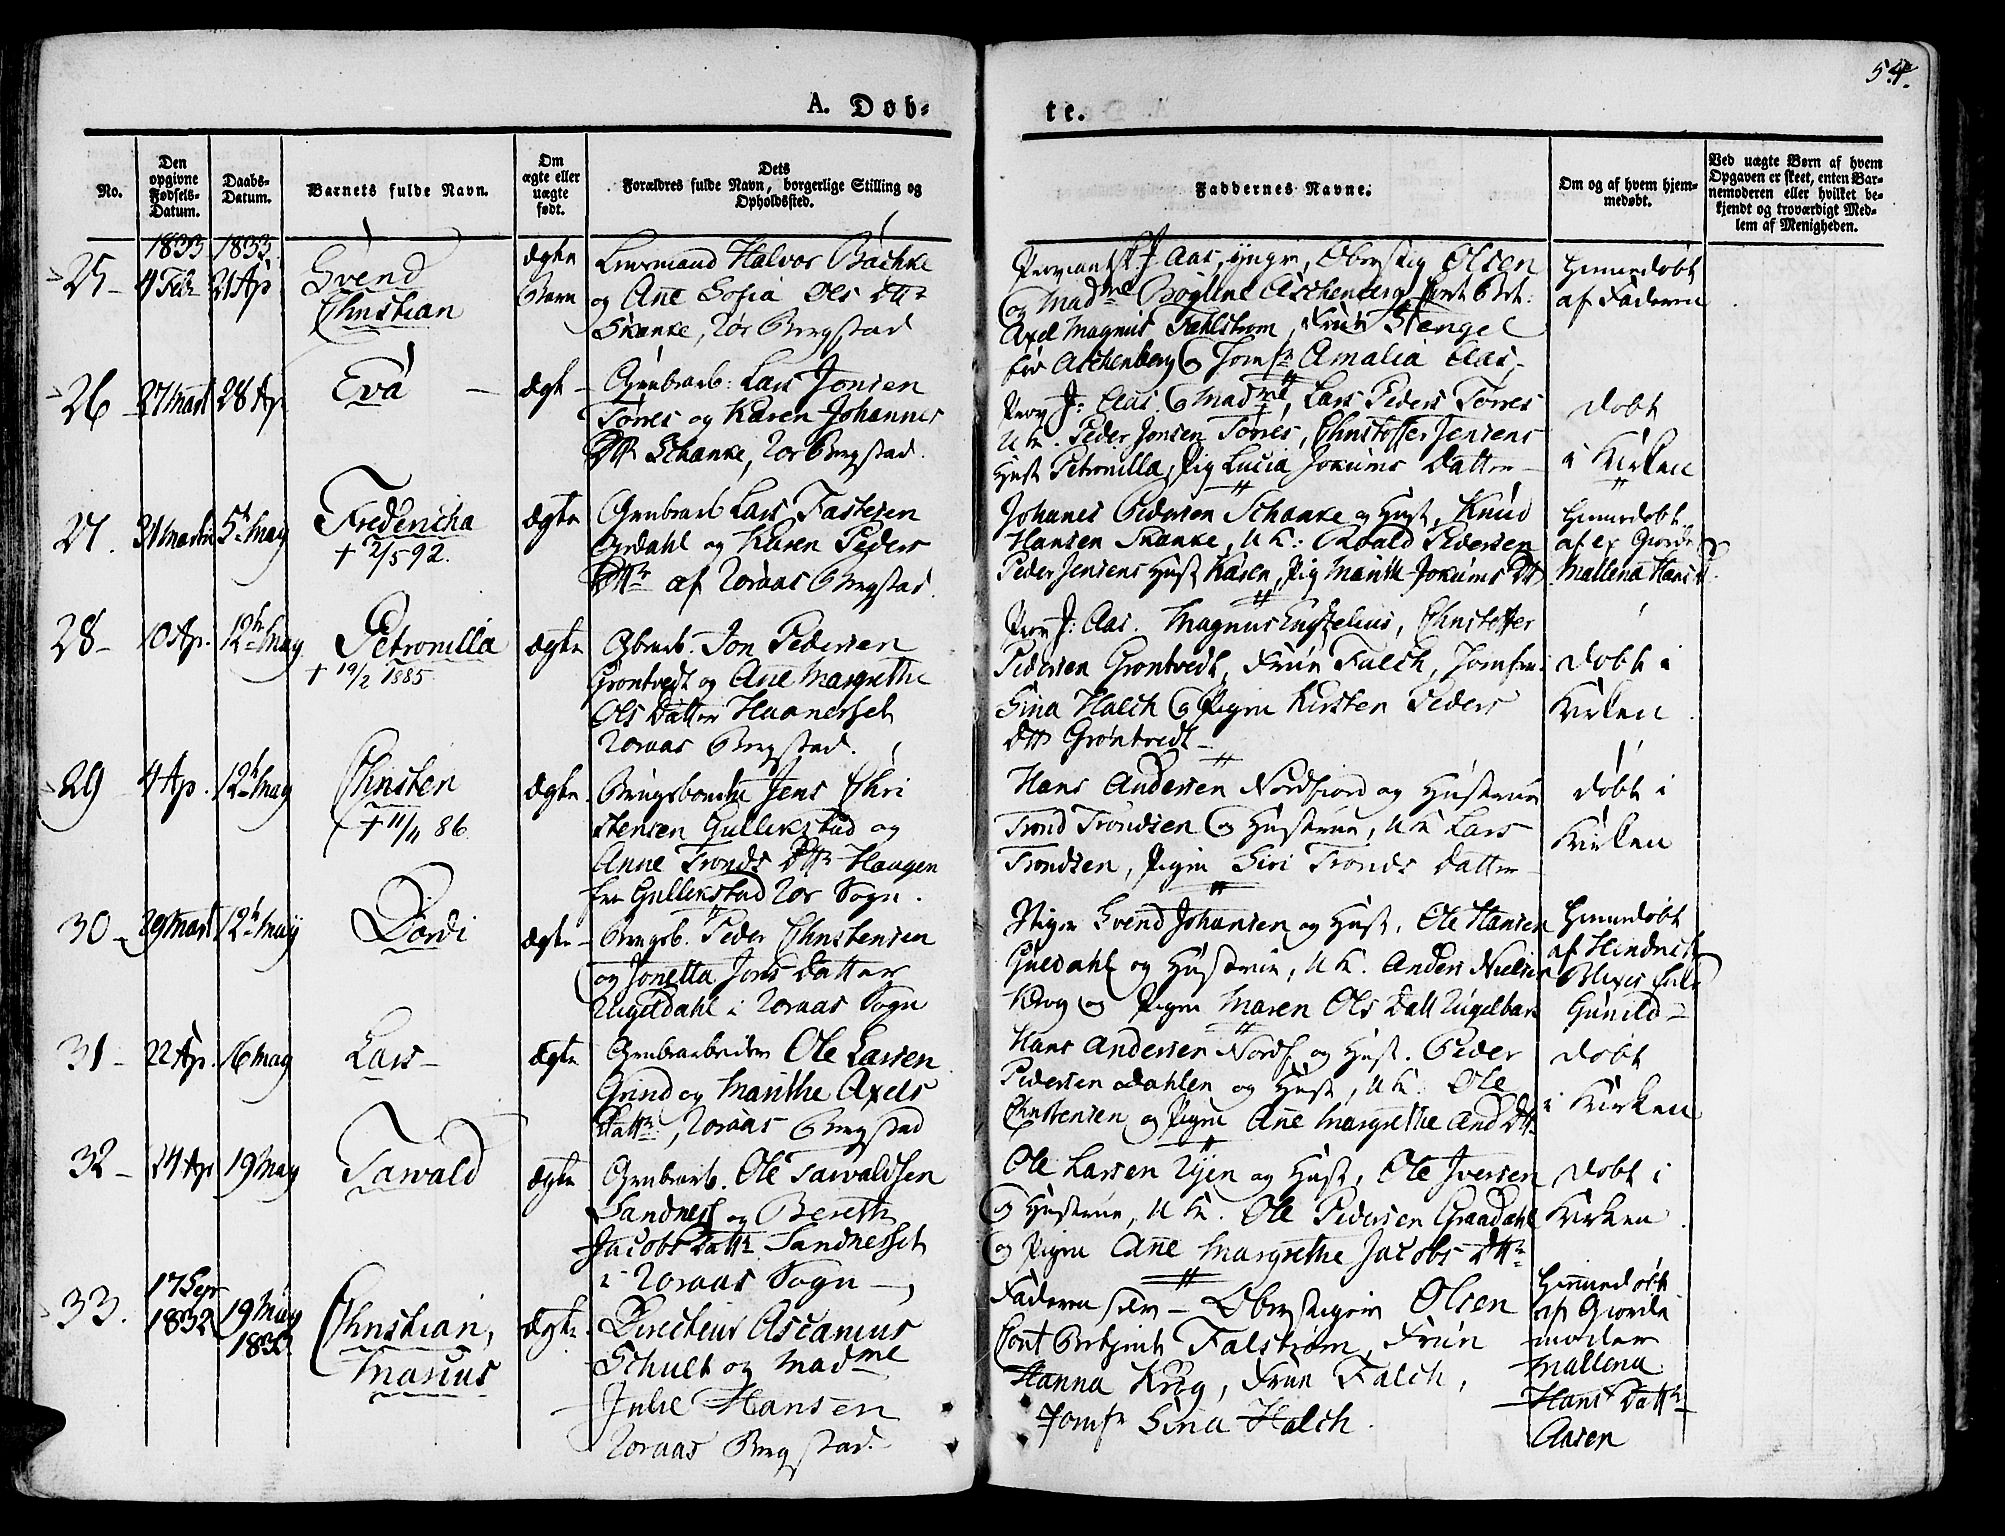 54.
A. Døb-
te.
No.
Den opgivne Fødsels-Datum.
Daabs-Datum.
Barnets fulde Navn.
Om ægte eller uægte født.
Dets
Forældres fulde Navn, borgerlige Stilling og
Opholdssted.
Faddernes Navne.
Om og af hvem hjem-
medøbt.
Ved uægte Børn af hvem
Opgaven er skeet, enten Bar-
nemoderen eller hvilket be-
kjendt og troværdigt Med-
lem af Menigheden.
1833 1833
25 - 4 Febr 21 Ap
Svend
Christian
Ægte
Barn
Halvor Bachke
og Anne Sofia Ols Dttr
Skanke, Rør Bergstad
Aas, yngre, Oberstig Olsen
og Madme Bogline Aschenberg
Axel Magnus Fahlstrøm, Frue Stengel
før Aschenberg og Jomfr Amalia Aas
Hiemedøbt
af Faderen
26 - 27 Marti 28 Ap
Eva -
Ægte -
Grubearb: Lars Jonsen
Torres og Karen Johannes
Dttr Schanke, Rør Bergstad.
Prov J. Aas og Madme, Lars Peders Torres
UK. Peder Jonsen Torres, Christoffer Jensens
Hust Petronilla, Pig Lucia Jokums Datter -
Døbt
i Kirken
27. 31 Martii 5t May
Fredericha
+ 2/5 92.
Ægte
Grubearb Lars Fastesen
Ordahl og Karen Peders
Dttr af Røraas Bergstad.
Johanes Pedersen Schanke og Hust, Knud
Hansen Skanke, UK: Roald Pedersen
Peder Jensens Hust Karen, Pig Marith Jokums Dtt
Hiemedøbt
af ex Giordem
Mallena Hans D.
28 - 10 Ap. 12te May
Petronilla
+ 19/2 1885.
Ægte
Gbearb. Jon Pedersen
Grøntvedt og Ane Margrethe
Ols Datter Haanesset
Røraas Bergstad.
Prov J: Aas. Magnus Engzelius, Christoffer
Pedersen Grøntvedt, Frue Falch, Jomfru
Sina Halch og Pigen Kirsten Peders
Dttr Grøntvedt -
Døbt i
Kirken
29 4 Ap. 12te May
Christen
+ 11/11 86.
Ægte
Brugsbonde Jens Chri
stensen Gullikstad og
Anne Tronds Dttr Haugen
fra Gullikstad Rør Sogn.
Hans Andersen Nordfiord og Hustrue
Trond Trondsen og Hustrue, UK Lars
Trondsen, Pigen Siri Tronds Datter
Døbt i
Kirken
30 - 29 Marti 12te May
Dordi
Ægte -
Brugsb. Peder Christensen
og Jonetta Jons Datter
Rugeldahl i Røraas Sogn
Stiger Svend Johansen og Hust, Ole Hansen
Guldahl og Hustrue, UK. Anders Nielsen
Krog og Pigen Maren Ols Datt
Hiemedøbt
af Hindrich
Gunild -
31 - 22 Ap. 16 May
Lars -
Ægte
Grubearbeider Ole Larsen
Grind og Marithe Axels
Dattr, Røraas Bergstad
Hans Andersen Nordf og Hust. Peder
Pedersen Dahlen og Hust, UK. Ole
Christensen og Pigen Ane Margrethe And Dttr
Døbt
i Kirken
32 - 14 Ap 19 May
Tarvald
Ægte
Grubearb. Ole Tarvaldsen
Sandness og Bereth
Jacobs Dattr Sandnesset
i Røraas Sogn -
Ole Larsen Ryen og Hust, Ole Iversen
og Hustrue, UK. Ole Pedersen Graadahl
og Pigen Ane Margrethe Jacobs Dttr
Døbt i
Kirken
33. 17 Sepr
1832 19 May
1833
Christian,
Marius
Ægte.
Directeur Ascanius
Schult og Madme
Julie Hansen
Røraas Bergstad.
Faderen selv - Oberstigeren Olsen
Cont Betjent Falstrøm, Frue
Hanna Krog, Frue Falch,
Jomfr Sina Halch.
Hiemedøbt
af Giorde
moder
Mallena
Hans Dattr
Aasen